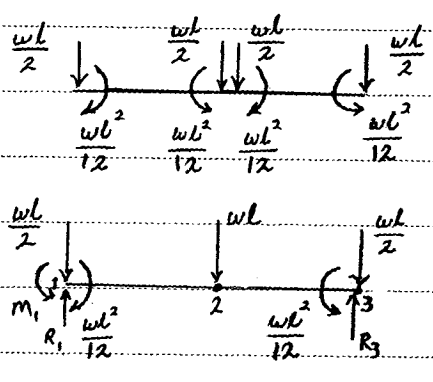 wl/2 wl/2 wl/2 wl/2
wl²/12 wl²/12 wl²/12 wl²/12
wl/2 wl wl/2
1 2 3
M₁ R₁ wl²/12 wl²/12 R₃